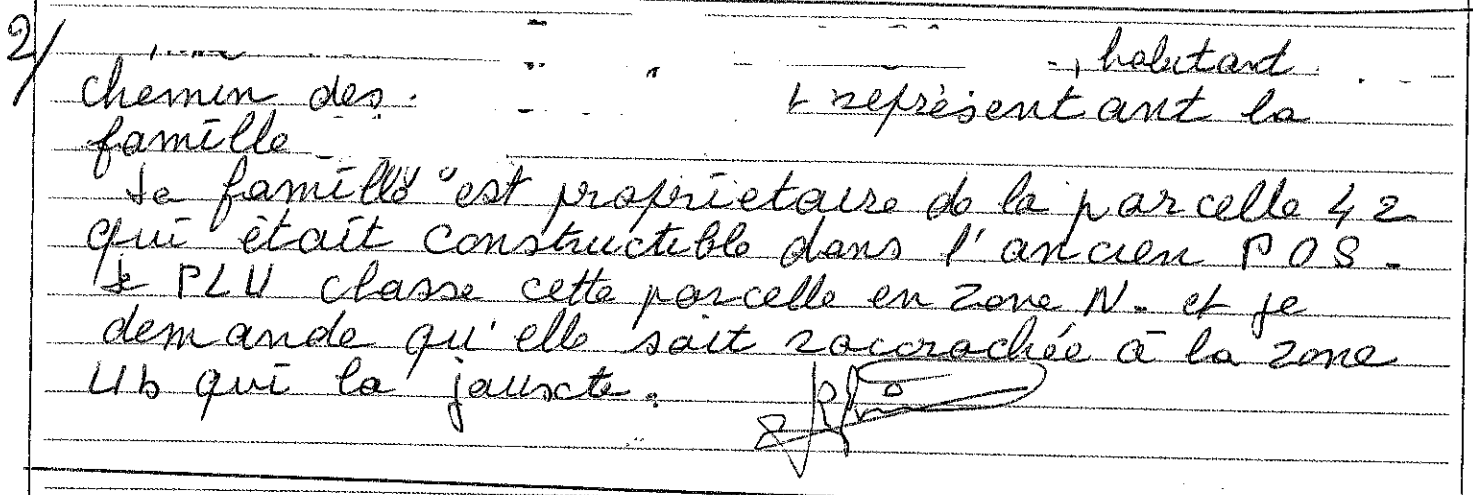 2/ , habitant
chemin des représentant la
famille
La famille est propriétaire de la parcelle 42
qui était constructible dans l'ancien POS.
Le PLU classe cette parcelle en zone N. et je
demande qu'elle soit raccrochée à la zone
Ub qui la jouxte.